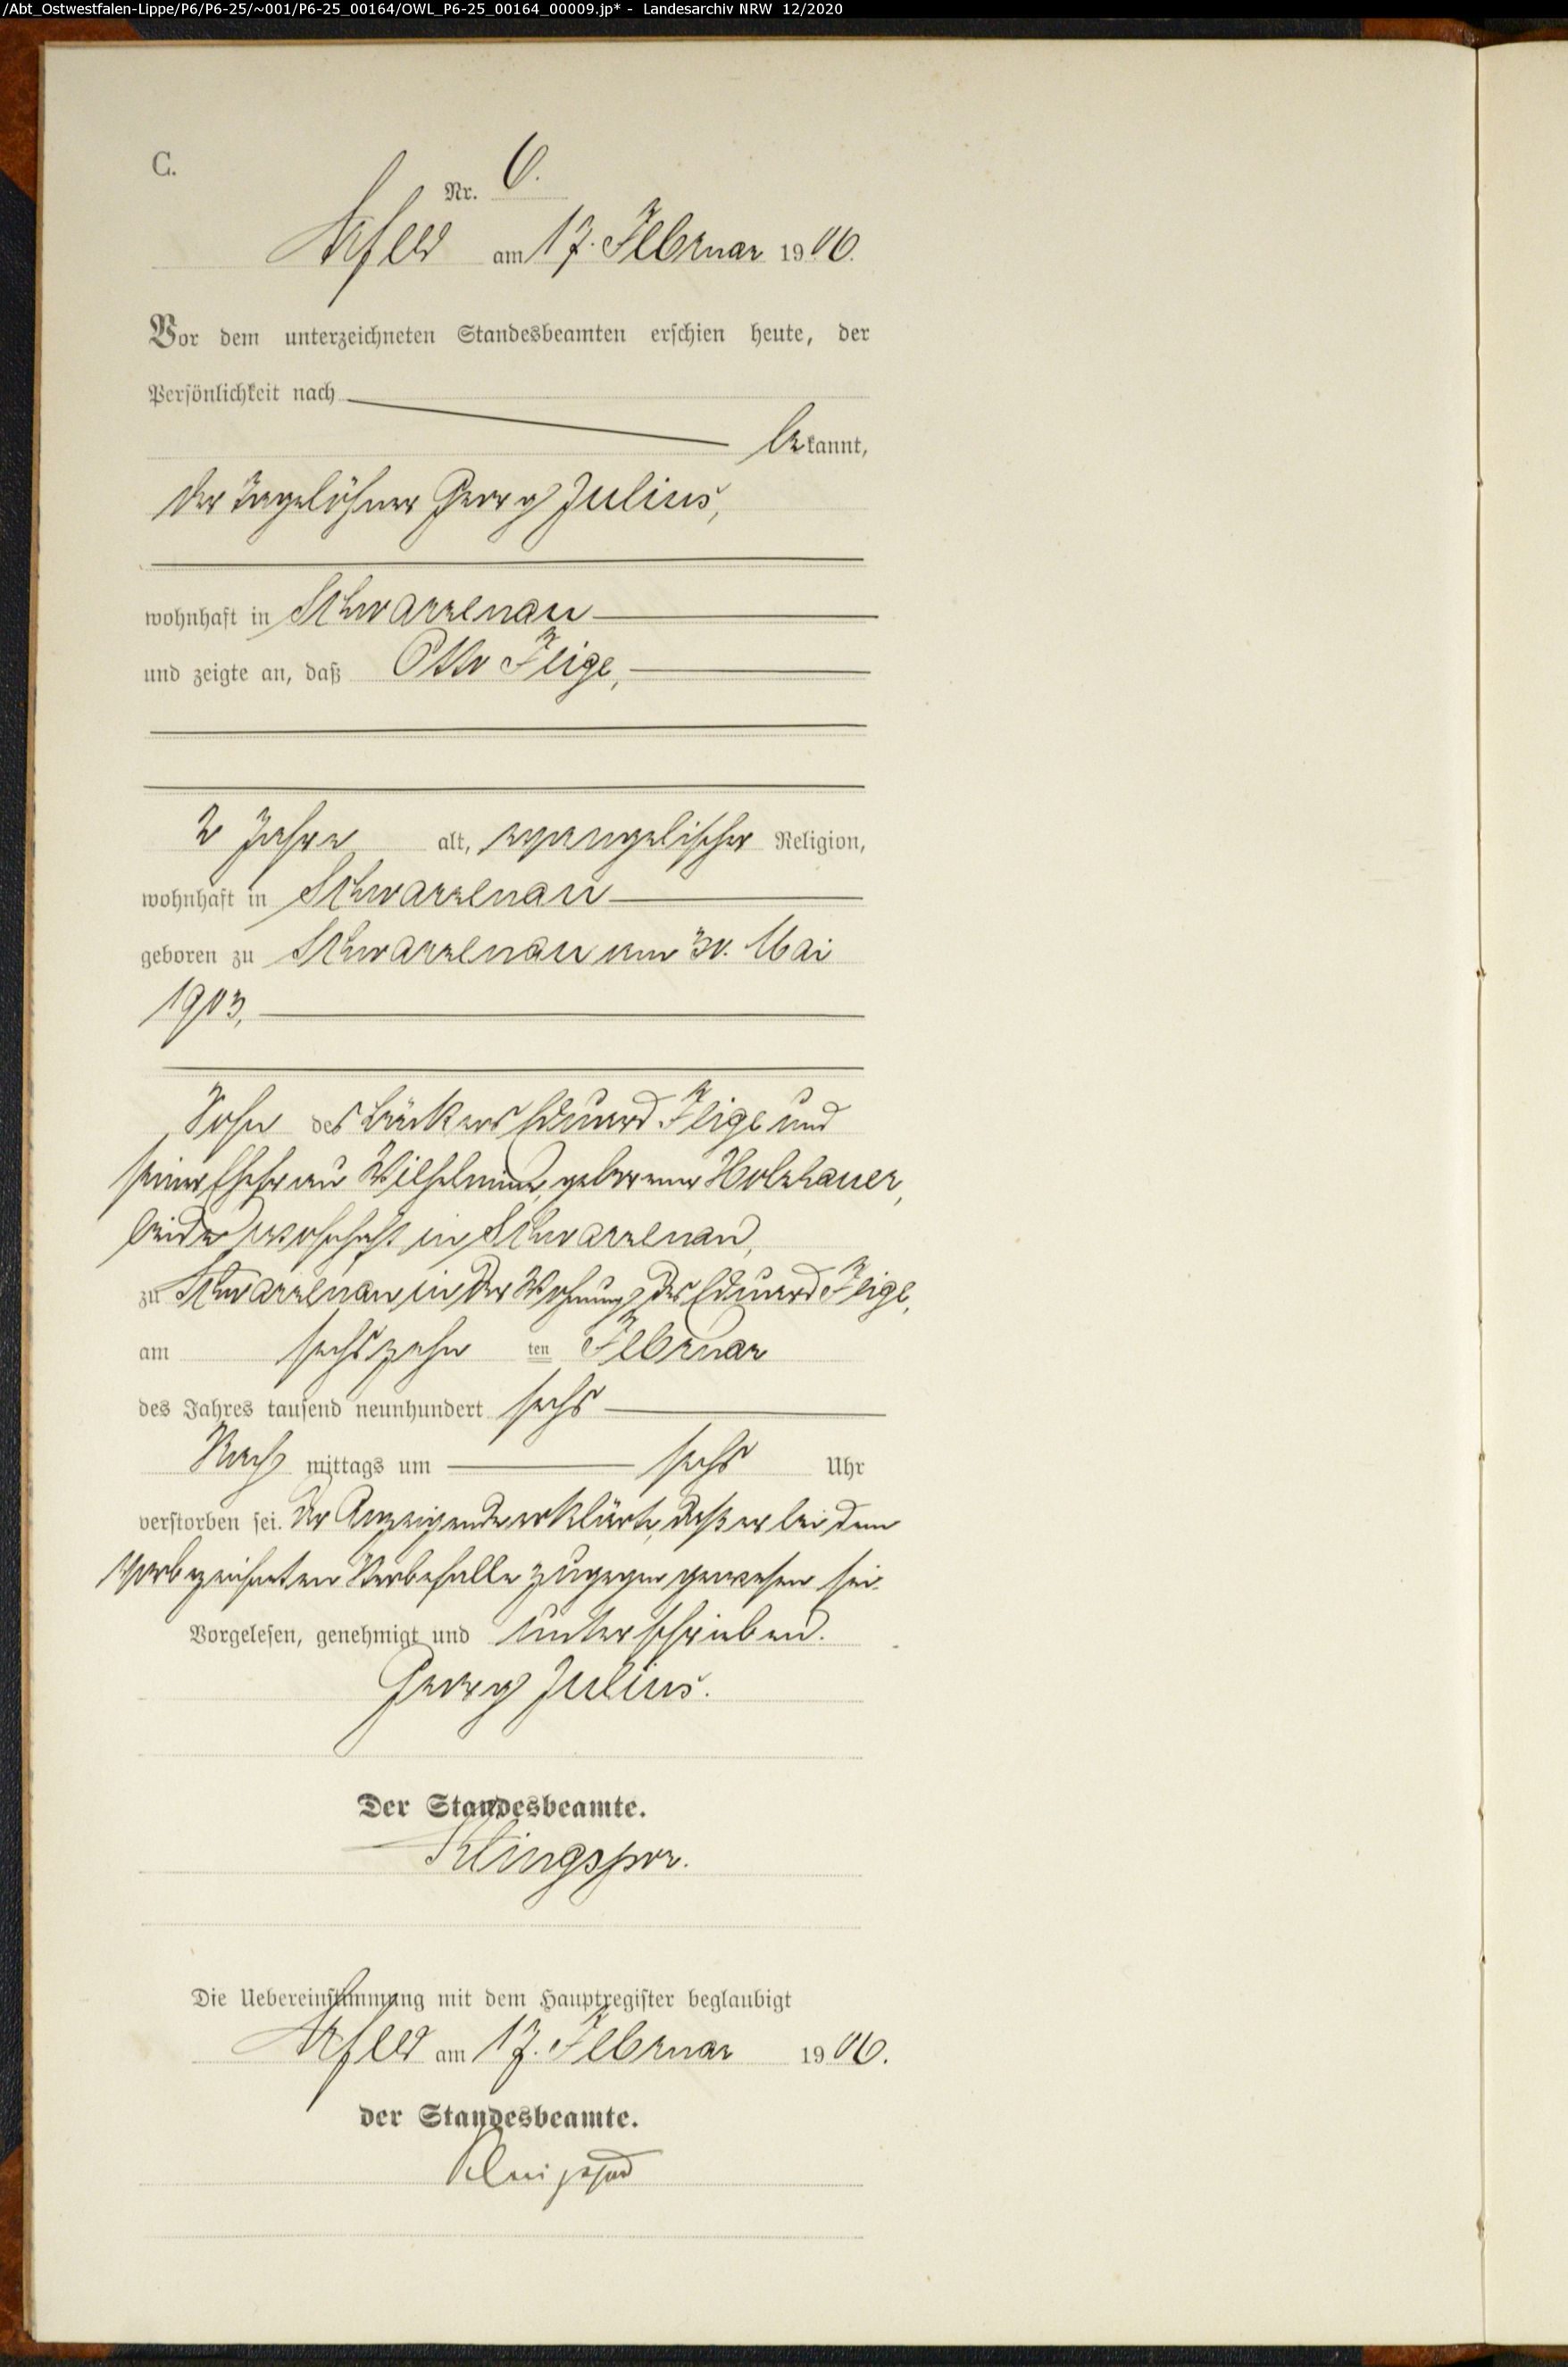 /Abt_Ostwestfalen-Lippe/P6/P6-25/~001/P6-25_00164/OWL_P6-25_00164_00009.jp* - Landesarchiv NRW 12/2020
C.
Nr. 6.
Arfeld am 17. Februar 1906.
Vor dem unterzeichneten Standesbeamten erschien heute, der
Persönlichkeit nach
bekannt,
der Tagelöhner Georg Julius,
wohnhaft in Schwarzenau
und zeigte an, daß Otto Feige,
2 Jahre alt, evangelischer Religion,
wohnhaft in Schwarzenau
geboren zu Schwarzenau am 30. Mai
1903,
Sohn des Bäckers Eduard Feige und
seiner Ehefrau Wilhelmine, geborener Holzhauer,
beide wohnhaft in Schwarzenau,
zu Schwarzenau in der Wohnung des Eduard Feige,
am sechszehn ten Februar
des Jahres tausend neunhundert sechs
Nach mittags um sechs Uhr
verstorben sei. Der Anzeigende erklärte, daß er bei dem
vorbezeichneten Sterbefalle zugegen gewesen sei.
Vorgelesen, genehmigt und unterschrieben.
Georg Julius.
Der Standesbeamte.
Klingspor.
Die Uebereinstimmung mit dem Hauptregister beglaubigt
Arfeld am 17. Februar 1906.
der Standesbeamte.